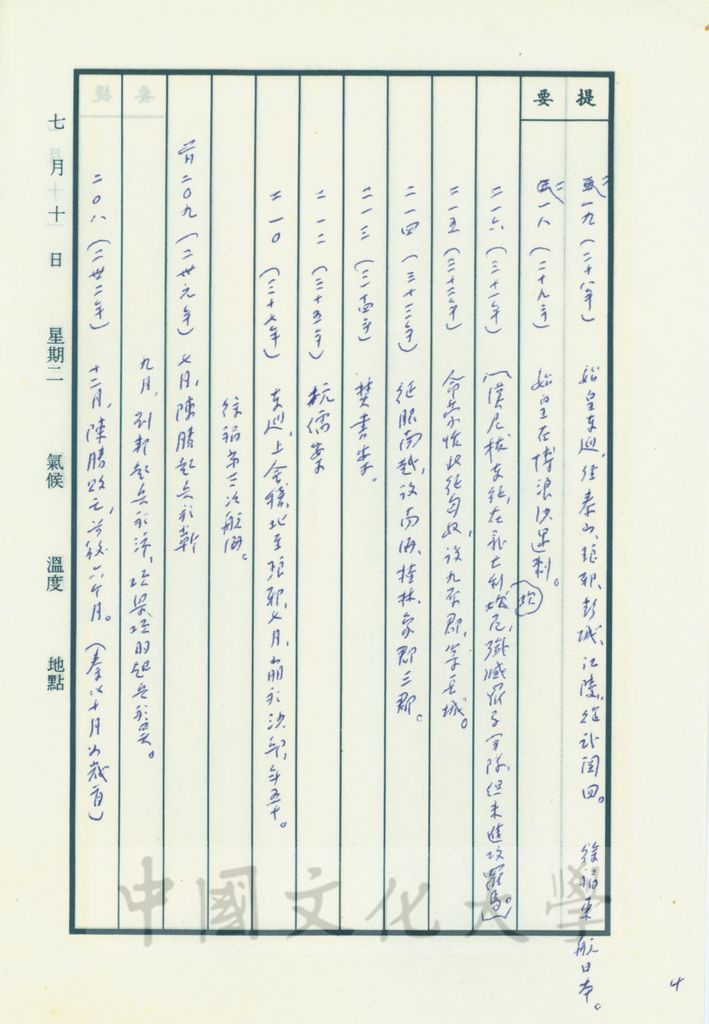 提要
二一九（二十八年） 始皇東巡，往泰山、琅邪、彭城、江陵，從武關回。 徐福東航日本。
二一八（二十九年） 始皇在博浪沙遇刺。
二一六（三十一年） （漢尼拔東征，在義大利坎尼，殲滅羅馬軍隊，但未進攻羅馬。）
坎
二一五（三十二年） 命蒙恬北征匈奴，設九原郡，築長城。
二一四（三十三年） 征服南越，設南海、桂林、象郡三郡。
二一三（三十四年） 焚書案。
二一二（三十五年） 坑儒案
二一〇（三十七年） 東巡，上會稽，北至琅邪，七月，崩於沙邱，年五十。
徐福第三次航海。
二〇九（二世元年） 七月，陳勝起兵於蘄
九月，劉邦起兵於沛，項梁項羽起兵於吳。
二〇八（二世二年） 十二月，陳勝敗亡，前後六个月。（秦以十月為歲首）
七月十日 星期二 氣候 溫度 地點
中國文化大學
4